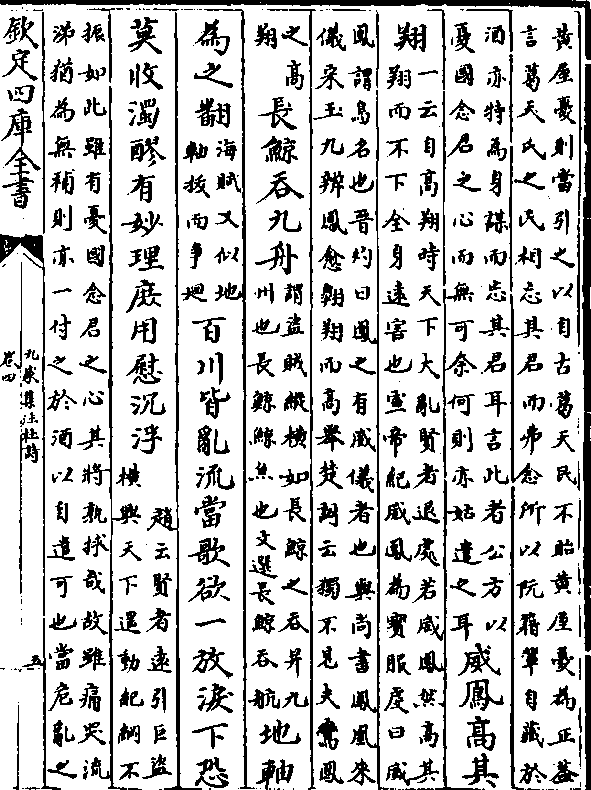 黄屋憂則當引之以自古葛天民不貽黄屋憂為正葢
言葛天氏之民相忘其君而弗念所以阮籍軰自藏於
酒亦特為身謀而忘其君耳言此者公方以
憂國念君之心而無可奈何則亦姑遣之耳
威鳳髙其
翔
一云自髙翔時天下大亂賢者退處若威鳳然髙其
翔而不下全身逺害也宣帝紀威鳳為寳服䖍曰威
鳳謂鳥名也晉灼曰鳳之有威儀者也與尚書鳳凰來
儀宋玉九辨鳳愈翺翔而髙舉楚詞云獨不見夫鸞鳳
之髙
翔
長鯨吞九舟
謂盜賊縱橫如長鯨之吞并九
州也長鯨鯨魚也文選長鯨吞航
地軸
為之翻
海賦又似地
軸拔而爭廻
百川皆亂流當歌欲一放淚下恐
莫收濁醪有妙理庻用慰沉浮
趙云賢者逺引巨盜
橫興天下運動紀綱不
振如此雖有憂國念君之心其將孰救哉故雖痛哭流
涕猶為無補則亦一付之於酒以自遣可也當危亂之
欽定四庫全書
九家集注杜詩
卷四
五